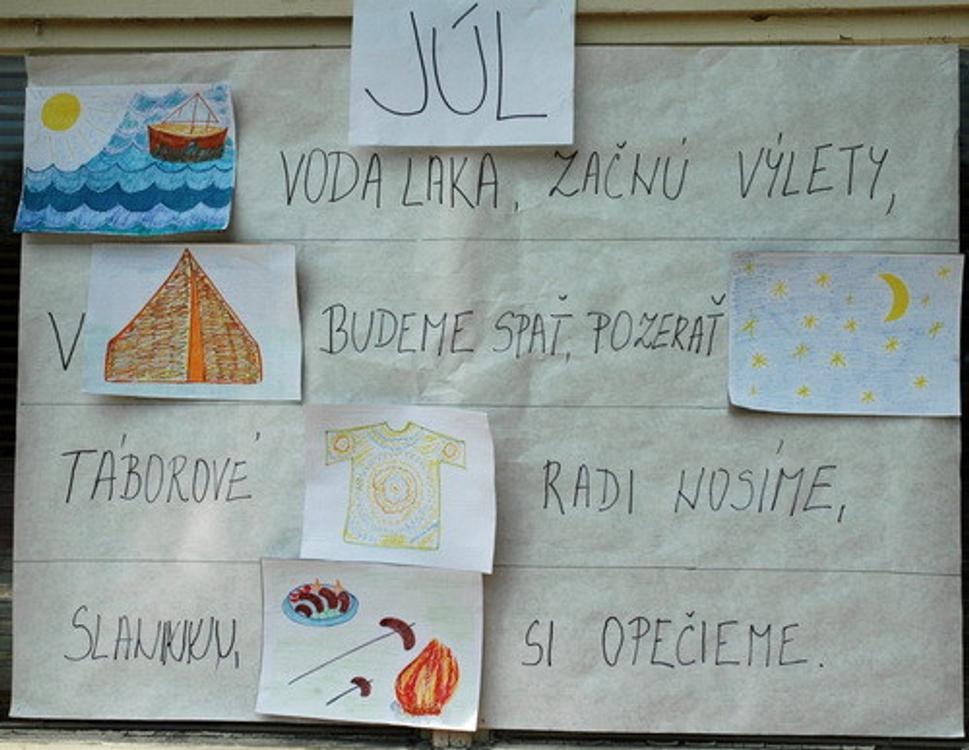 JÚL
VODA LAKA, ZAČNÚ VÝLETY,
V BUDEME SPAŤ, POZERAŤ
TÁBOROVÉ RADI NOSÍME,
SI OPEČIEME.